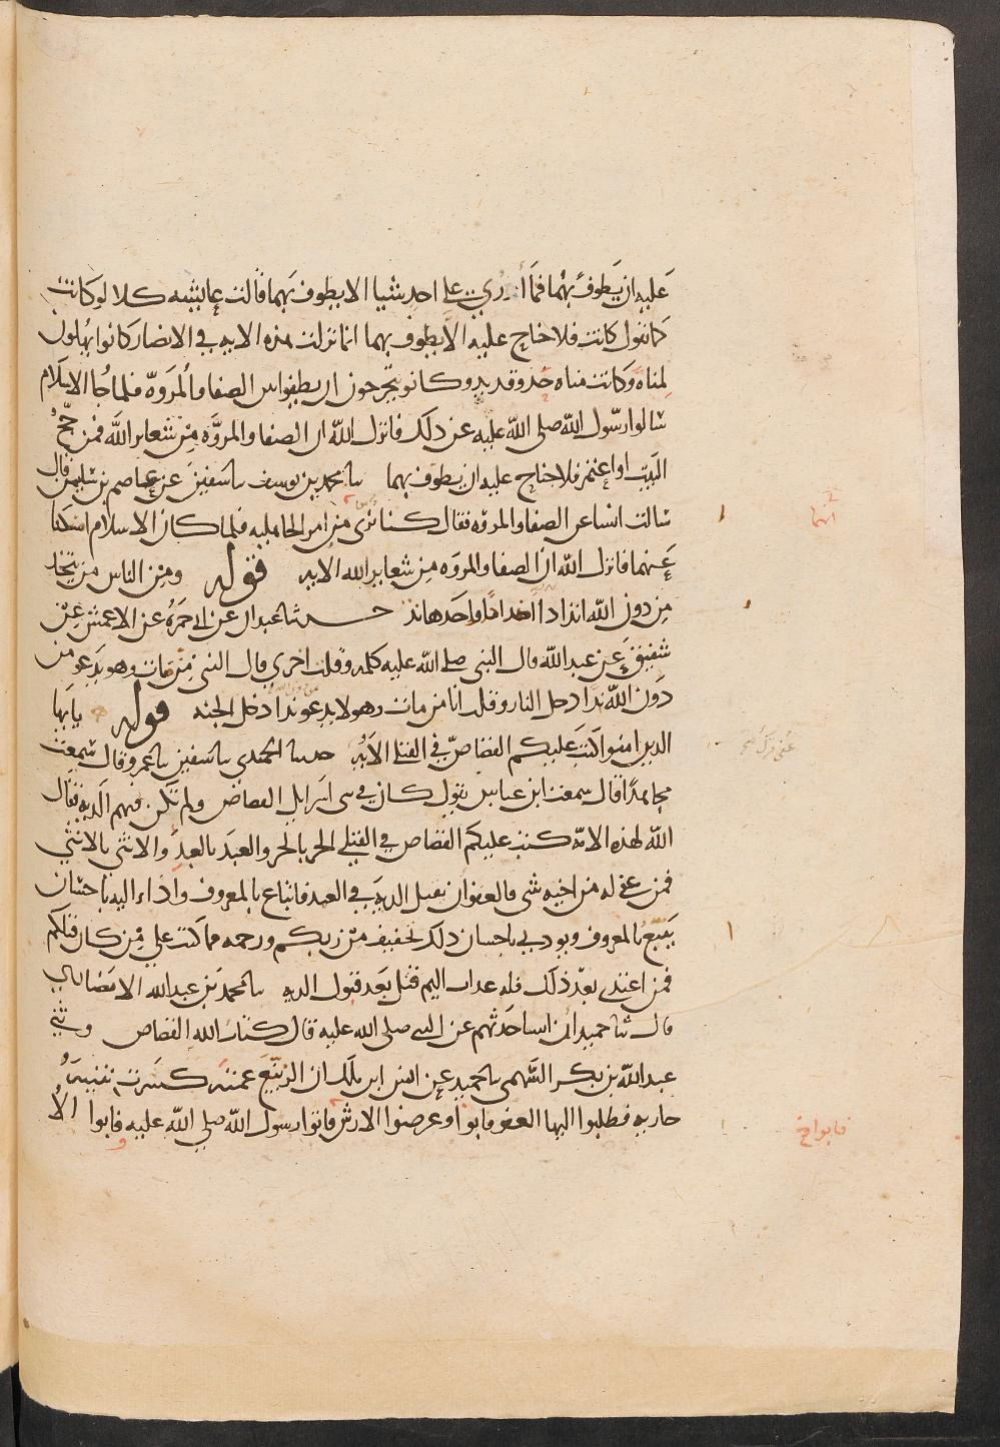 عليه ان يطوف بهما فما ارى على احد شيا الا يطوف بهما قالت عايشه كلا لو كانت
كما تقول كانت فلا جناح عليه الا يطوف بهما انما نزلت هذه الايه في الانصار كانوا يهلون
لمناه وكانت مناه حذو قديد وكانو يتحرجون ان يطوفوا بين الصفا والمروه فلما جا الاسلام
سالوا رسول الله صلى الله عليه عن ذلك فانزل الله ان الصفا والمروه من شعاير الله فمن حج
البيت او اعتمر فلا جناح عليه ان يطوف بهما نا محمد بن يوسف نا سفين عن عاصم بن سليمن قال
سالت انسا عن الصفا والمروه فقال كنا نرى من امر الجاهليه فلما كان الاسلام امسكنا
عنهما فانزل الله ان الصفا والمروه من شعاير الله الايه قوله ومن الناس من يتخذ
من دون الله اندادا اضدادا واحدها ند حدثنا عبدان عن ابي حمزه عن الاعمش عن
شقيق عن عبد الله قال النبي صلى الله عليه كلمه وقلت اخرى قال النبي من مات وهو يدعو من
دون الله ندا دخل النار وقلت انا من مات وهو لا يدعو ندا دخل الجنه قوله يا يها
الذين امنوا كتب عليكم القصاص في القتلى الايه حدثنا الحميدي نا سفين نا عمرو قال سمعت
مجاهدا قال سمعت ابن عباس يقول كان في بني اسرايل القصاص ولم تكن فيهم الديه فقال
الله لهذه الامه كتب عليكم القصاص في القتلى الحر بالحر والعبد بالعبد والانثى بالانثى
فمن عفي له من اخيه شي فالعفو ان يقبل الديه في العمد فاتباع بالمعروف واداء اليه باحسان
يتبع بالمعروف ويودي باحسان ذلك تخفيف من ربكم ورحمه مما كتب على من كان قبلكم
فمن اعتدى بعد ذلك فله عذاب اليم قتل بعد قبول الديه نا محمد بن عبد الله الانصاري
قال نا حميد ان انسا حدثهم عن النبي صلى الله عليه قال كتاب الله القصاص وثني
عبد الله بن بكر السهمي نا حميد عن انس ابن ملك ان الربيع عمته كسرت ثنية
جاريه فطلبوا اليها العفو فابوا وعرضوا الارش فاتوا رسول الله صلى الله عليه فابوا الا
انهما
فابوا خ